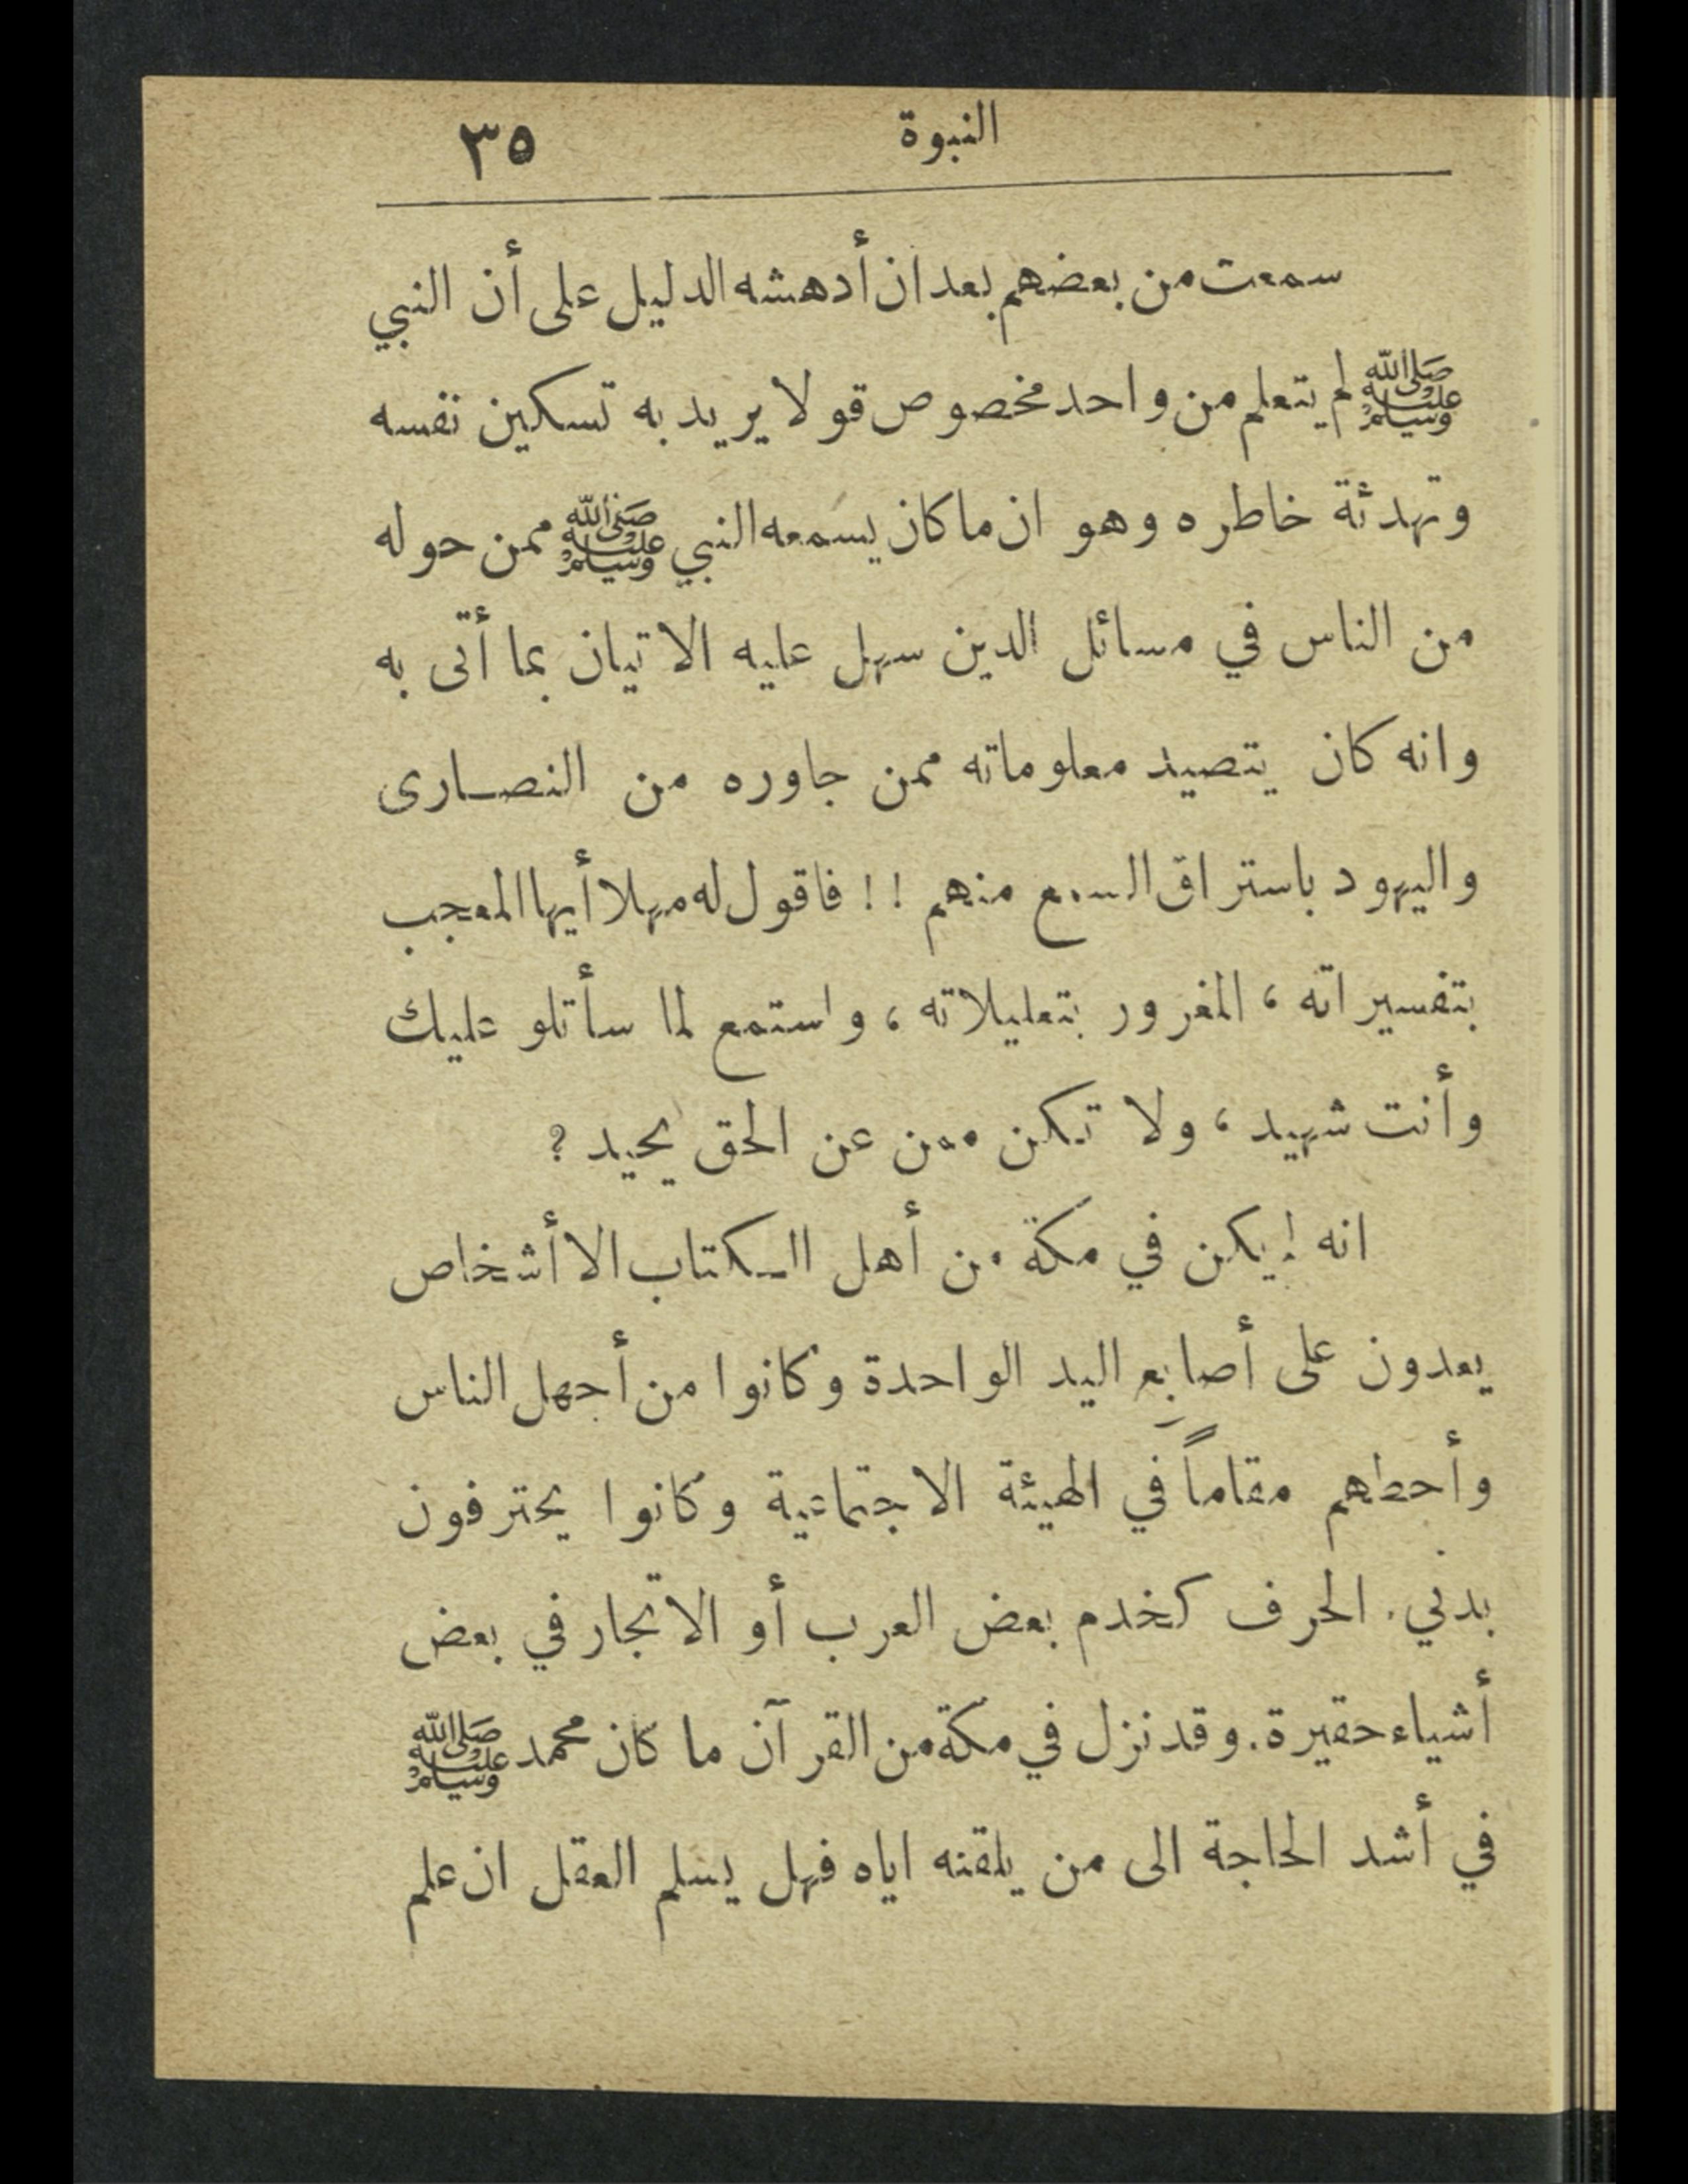 النبوة ٣٥
سمعت من بعضهم بعد ان أدهشه الدليل على أن النبي
ﷺ لم يتعلم من واحد مخصوص قولا يريد به تسكين نفسه
وتهدئة خاطره وهو ان ما كان يسمعه النبي ﷺ ممن حوله
من الناس في مسائل الدين سهل عليه الاتيان بما أتى به
وانه كان يتصيد معلوماته ممن جاوره من النصارى
واليهود باستراق السمع منهم !! فاقول له مهلا أيها المعجب
بتفسيراته ، المغرور بتعليلاته ، واستمع لما سأتلو عليك
وأنت شهيد ، ولا تكن ممن عن الحق يحيد ؟
انه لم يكن في مكة من أهل الكتاب الا أشخاص
يعدون على أصابع اليد الواحدة وكانوا من أجهل الناس
وأحطهم مقاماً في الهيئة الاجتماعية وكانوا يحترفون
بدنيء الحرف كخدم بعض العرب أو الاتجار في بعض
أشياء حقيرة . وقد نزل في مكة من القرآن ما كان محمد ﷺ
في أشد الحاجة الى من يلقنه اياه فهل يسلم العقل ان علم